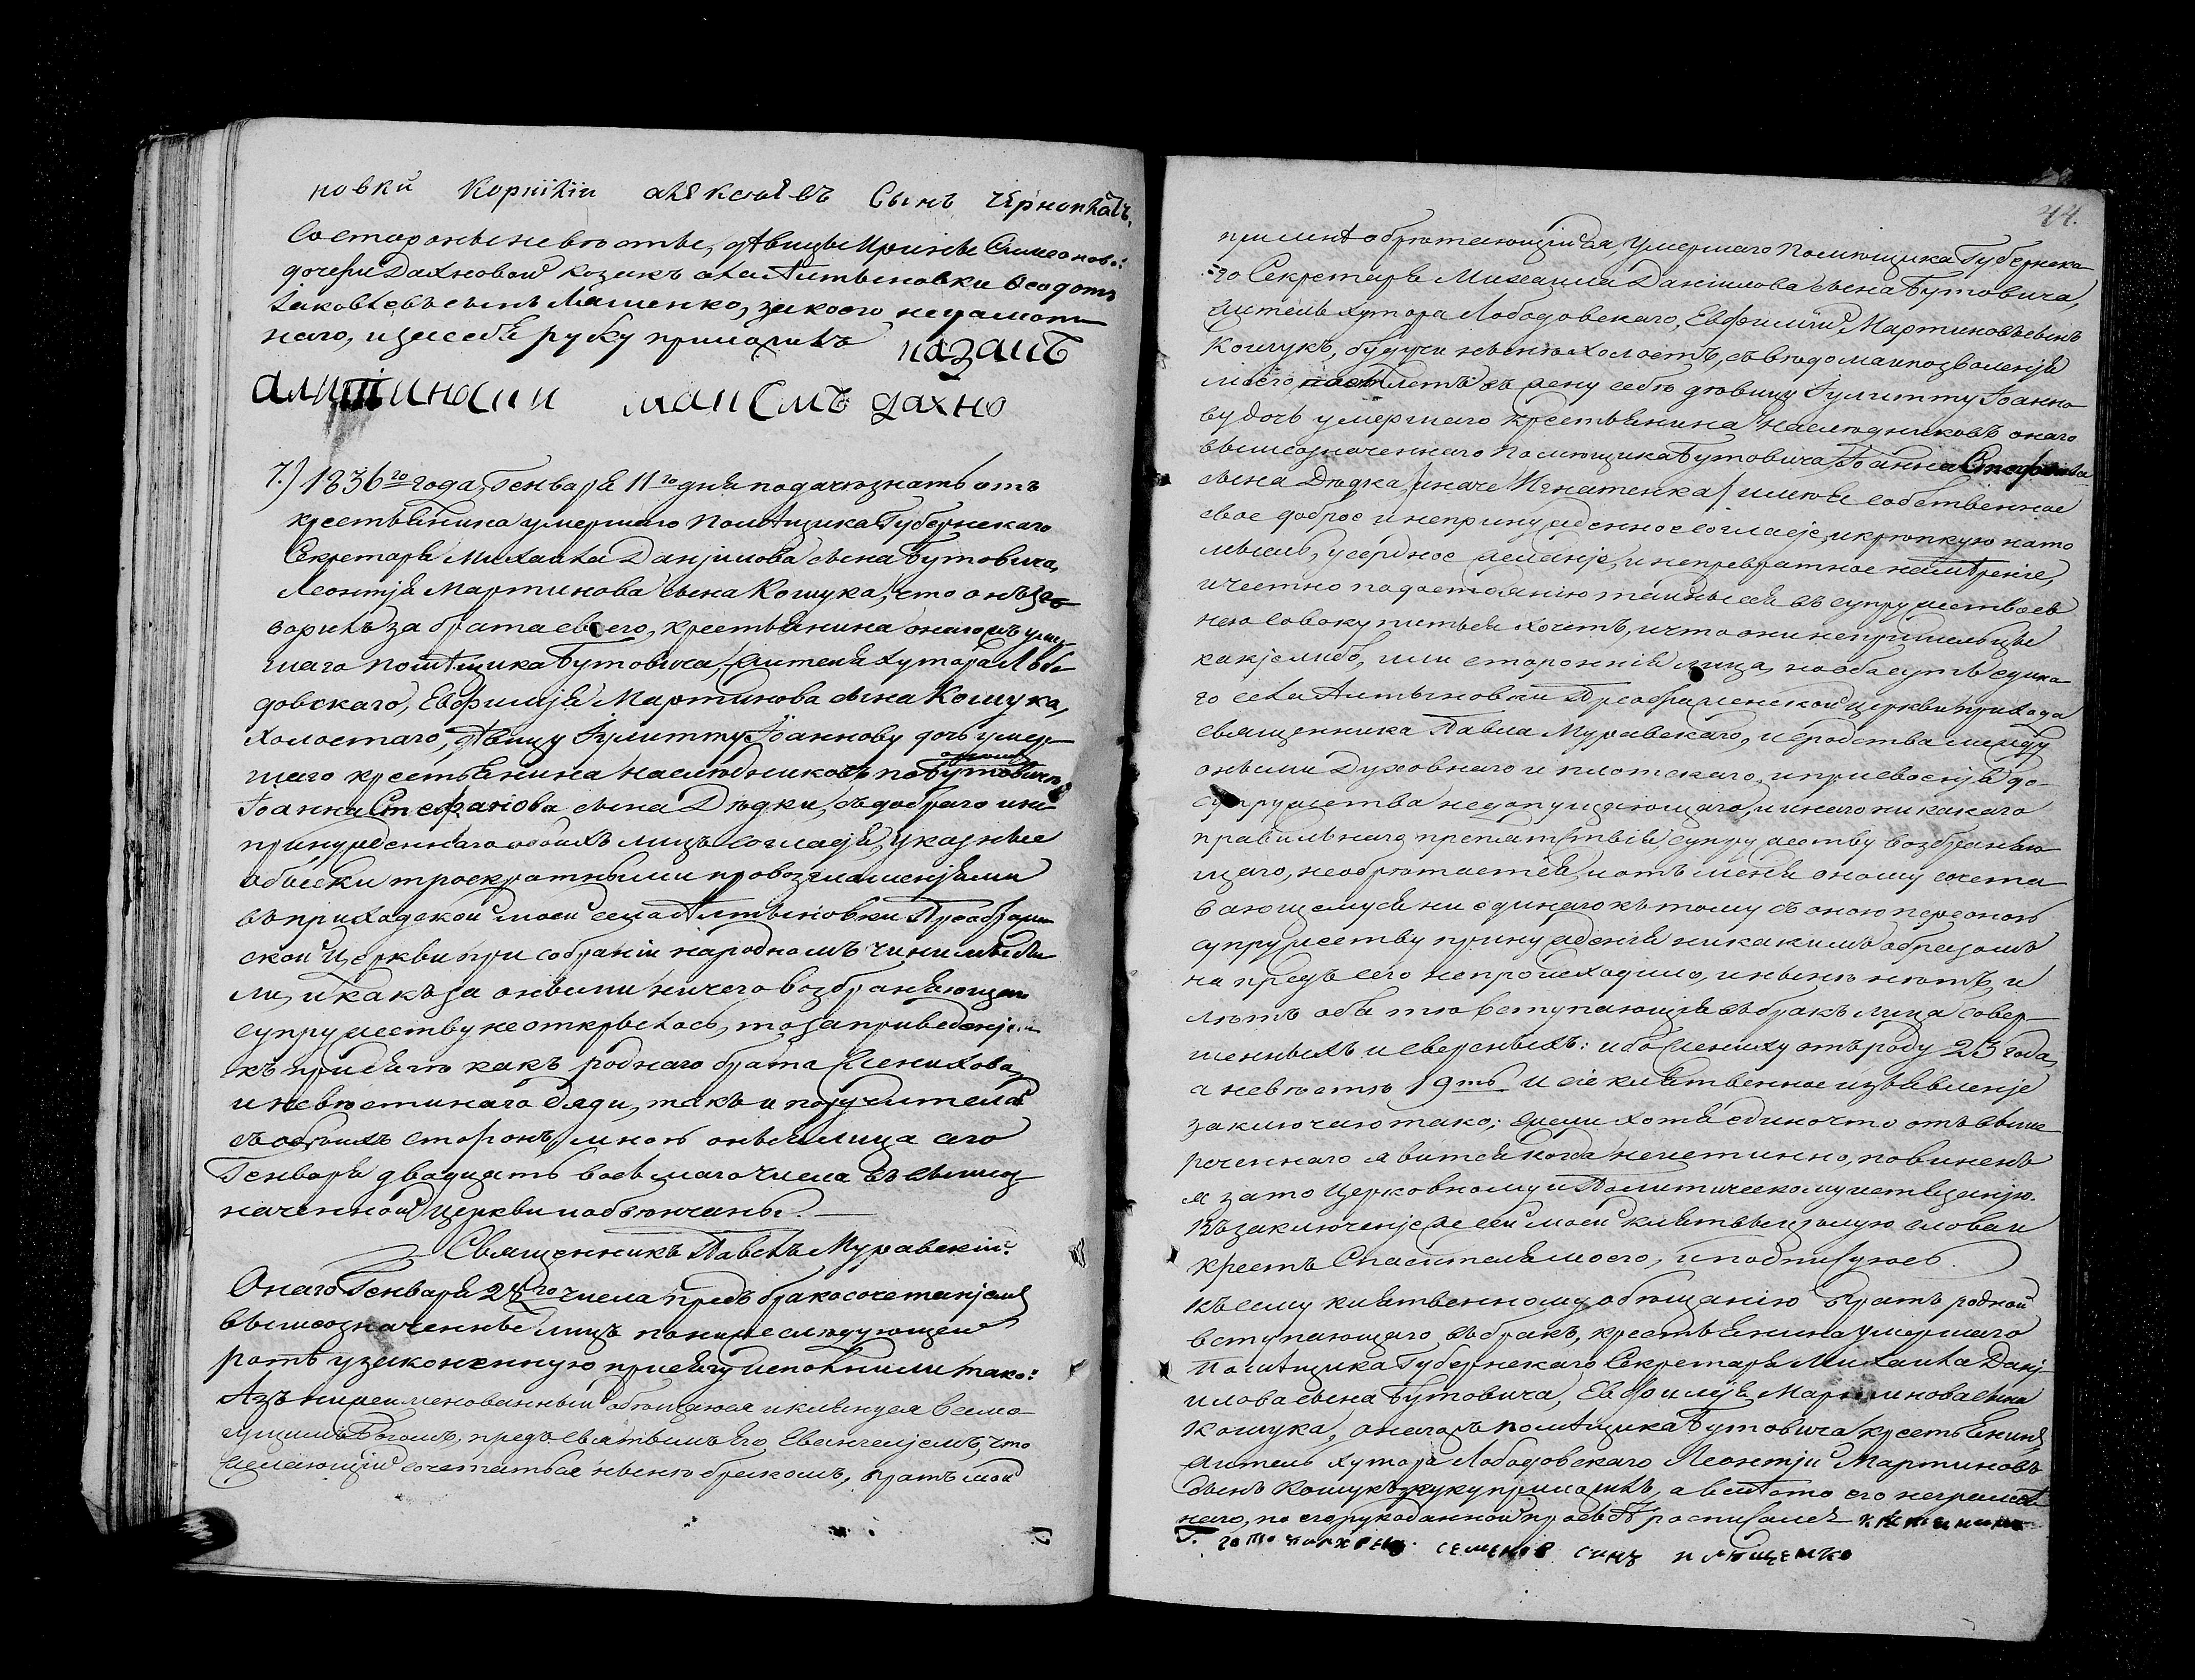 новки Корнілій алексѣевъ Сынъ чернопλατъ.
Со стороны невѣсты, дѣвицы Ирины Симеонов:
дочери Дахновой козакъ села Литвиновки Ѳеодотъ
Іаковлевъ сынъ Ляшенко, за коего неграмот-
наго, и за себя руку приложилъ козакъ
максимъ дахно
7.) 1836го года, Генваря 11го дня подано знать отъ
крестьянина умершаго Помѣщика Губернскаго
Секретаря Михаила Даніилова сына Бутовича,
Леонтія Мартинова сына Кошука, что онъ
за брата своего, крестьянина онагожъ умер-
шаго помѣщика Бутовича, жителя хутора Лобо-
довскаго, Евфимія Мартинова сына Кошука,
холостаго, дѣвицу Іулитту Іоаннову дочь умер-
шаго крестьянина наслѣдниковъ Бутовича
Іоанна Стефанова сына Дѣдки, съ добраго и не-
принужденнаго обоихъ лицъ согласія, указные
обыски троекратными провозглашеніями
въ приходской моей села Литвиновки Преображен-
ской Церкви при собраніи народномъ чинимы бы-
ли, и какъ за оными ничего возбраняющаго
супружеству не открылось, то за приведеніемъ
къ присягѣ какъ роднаго брата женихова,
и невѣстинаго дяди, такъ и поручителей
съ обоихъ сторонъ, мною оныя лица сего
Генваря двадцать восьмаго числа въ вышеоз-
наченной церкви и обвѣнчаны.
Священникъ Павелъ Муравскій.
Онаго Генваря 28го числа предъ бракосочетаніемъ
вышеозначенные лицъ по нижеслѣдующей
ротѣ узаконенную присягу исполнили тако:
Азъ нижеименованный обѣщаюся и клянуся всемо-
гущимъ Богомъ, предъ святымъ Его Евангеліемъ, что
желающій сочетаться нынѣ бракомъ, братъ мой
44.
при мнѣ обрѣтающійся, умершаго Помѣщика Губернска-
го Секретаря Михаила Даніилова сына Бутовича,
житель хутора Лободовскаго, Евфимій Мартиновъ сынъ
Кошукъ, будучи нынѣ холостъ, съ вѣдома и позволенія
моего поемлетъ въ жену себѣ дѣвицу Іулитту Іоанно-
ву дочь умершаго крестьянина наслѣдниковъ онаго
вышеозначеннаго помѣщика Бутовича Іоанна Стефанова
сына Дѣдка /иначе Игнатенка/ имѣя собственное
свое доброе и непринужденное согласіе, и крѣпкую на то
мысль, усердное желаніе, и непревратное намѣреніе,
и честно по достоянію тайны сея въ супружество съ
нею совокупитьея хочетъ, и что они непришельцы
какіелибо, или сторонніе лица, но оба суть едина-
го села Литвиновки Преображенской церкви прихода
священника Павла Муравскаго, и сродства между
оными Духовнаго и плотскаго, и присвоенія до
супружества недопущающаго, и инаго никакаго
правильнаго препятствія супружеству возбраняю-
щаго, необрѣтается, и отъ мене оному сочета-
вающемуся ни единаго къ тому съ оною персоною
супружеству принужденія никакимъ образомъ
на предъ сего непроисходило, и нынѣ нѣтъ, и
лѣтъ оба тѣ вступающія въ бракъ лица совер-
шенныхъ и сверсныхъ: ибо жениху отъ роду 23 года,
а невѣстѣ 19ть И сіе клятвенное изъявленіе
заключаю тако: ежели хотя едино что отъ выше-
реченнаго явится когда неистинно, повиненъ
я за то Церковному и Политическому истязанію.
Въ заключеніе же сей моей клятвы цѣлую слова и
крестъ Спасителя моего, и подписуюсь.
Къ сему клятвенному обѣщанію братъ родной
вступающаго въ бракъ, крестьянина умершаго
Помѣщика Губернскаго Секретаря Михаила Дані-
илова сына Бутовича, Евфимія Мартинова сына
Кошука, онагожъ помѣщика Бутовича крестьянинъ
житель хутора Лободовскаго Леонтій Мартиновъ
сынъ Кошукъ руку приложилъ, а вмѣсто его неграмот-
наго, по его рукоданной прозьбѣ росписался
семенов синъ